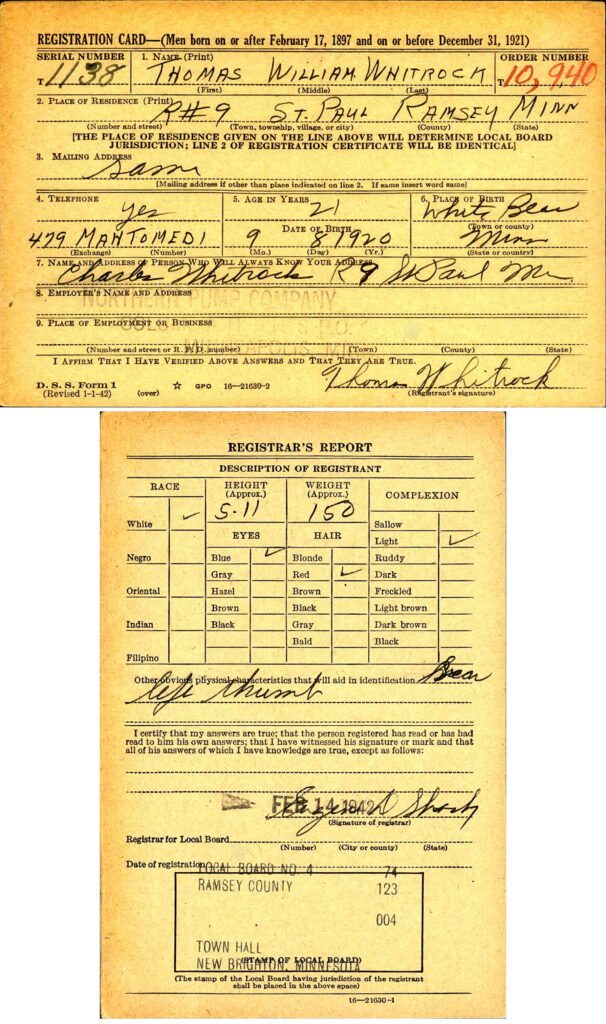 REGISTRATION CARD—(Men born on or after February 17, 1897 and on or before December 31, 1921)
SERIAL NUMBER 1. NAME (Print) ORDER NUMBER
T 1138 THOMAS WILLIAM WHITROCK T 10,940
(First) (Middle) (Last)
2. PLACE OF RESIDENCE (Print)
R#9 ST. PAUL RAMSEY MINN
(Number and street) (Town, township, village, or city) (County) (State)
[THE PLACE OF RESIDENCE GIVEN ON THE LINE ABOVE WILL DETERMINE LOCAL BOARD
JURISDICTION; LINE 2 OF REGISTRATION CERTIFICATE WILL BE IDENTICAL]
3. MAILING ADDRESS
Same
[Mailing address if other than place indicated on line 2. If same insert word same]
4. TELEPHONE 5. AGE IN YEARS 6. PLACE OF BIRTH
yes 21 White Bear
DATE OF BIRTH (Town or county)
479 MAHTOMEDI 9 8 1920 Minn
(Exchange) (Number) (Mo.) (Day) (Yr.) (State or country)
7. NAME AND ADDRESS OF PERSON WHO WILL ALWAYS KNOW YOUR ADDRESS
Charles Whitrock R 9 St Paul
8. EMPLOYER'S NAME AND ADDRESS
PUMP COMPANY
9. PLACE OF EMPLOYMENT OR BUSINESS
(Number and street or R. F. D. number) (Town) (County) (State)
I AFFIRM THAT I HAVE VERIFIED ABOVE ANSWERS AND THAT THEY ARE TRUE.
D. S. S. Form 1 Thomas Whitrock
(Revised 1-1-42) (over) ☆ GPO 16—21630-2 (Registrant's signature)
REGISTRAR'S REPORT
DESCRIPTION OF REGISTRANT
RACE HEIGHT (Approx.) WEIGHT (Approx.) COMPLEXION
5-11 150
White ✓ Sallow
EYES HAIR Light ✓
Negro Blue ✓ Blonde Ruddy
Gray Red ✓ Dark
Oriental Hazel Brown Freckled
Brown Black Light brown
Indian Black Gray Dark brown
Bald Black
Filipino
Other obvious physical characteristics that will aid in identification
thumb
I certify that my answers are true; that the person registered has read or has had
read to him his own answers; that I have witnessed his signature or mark and that
all of his answers of which I have knowledge are true, except as follows:
FEB 14 1942
(Signature of registrar)
Registrar for Local Board
(Number) (City or county) (State)
Date of registration
LOCAL BOARD NO. 4 74
RAMSEY COUNTY 123
004
TOWN HALL
NEW BRIGHTON, MINNESOTA
(STAMP OF LOCAL BOARD)
(The stamp of the Local Board having jurisdiction of the registrant
shall be placed in the above space)
16—21630-1